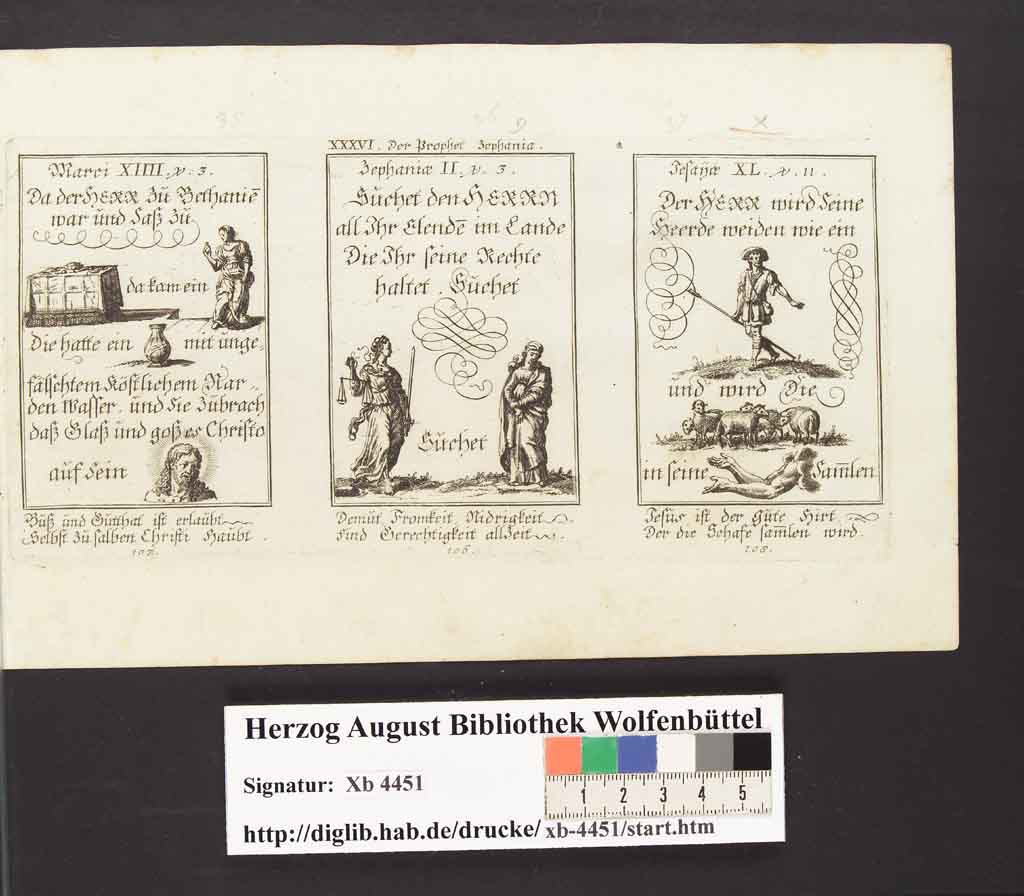 35
26
9
27
x
Marci XIIII. v. 3.
Da der HERR Zu Bethaniē
war und Saß Zu
da kam ein
Die hatte ein mit unge,
fälschtem Köstlichem Nar,,
den Wasser, und Sie Zubrach
daß Glaß und goß es Christo
auf Sein
Büß und Gutthat ist erlaubt
Selbst Zu salben Christi Haubt.
107.
XXXVI. Der Prophet Zephania.
Zephaniæ II. v. 3.
Suchet den HERRN
all Ihr Elendē im Lande
Die Ihr seine Rechte
haltet. Suchet
Suchet
Demut Fromkeit Nidrigkeit
Sind Gerechtigkeit allZeit.
106.
Jesaÿæ XL. v. 11.
Der HERR wird Seine
Heerde weiden wie ein
und wird Die
in seine Sam̄len
Jesus ist der Güte Hirt
Der die Schafe sam̄len wird.
108.
Herzog August Bibliothek Wolfenbüttel
Signatur: Xb 4451
1 2 3 4 5
http://diglib.hab.de/drucke/ xb-4451/start.htm